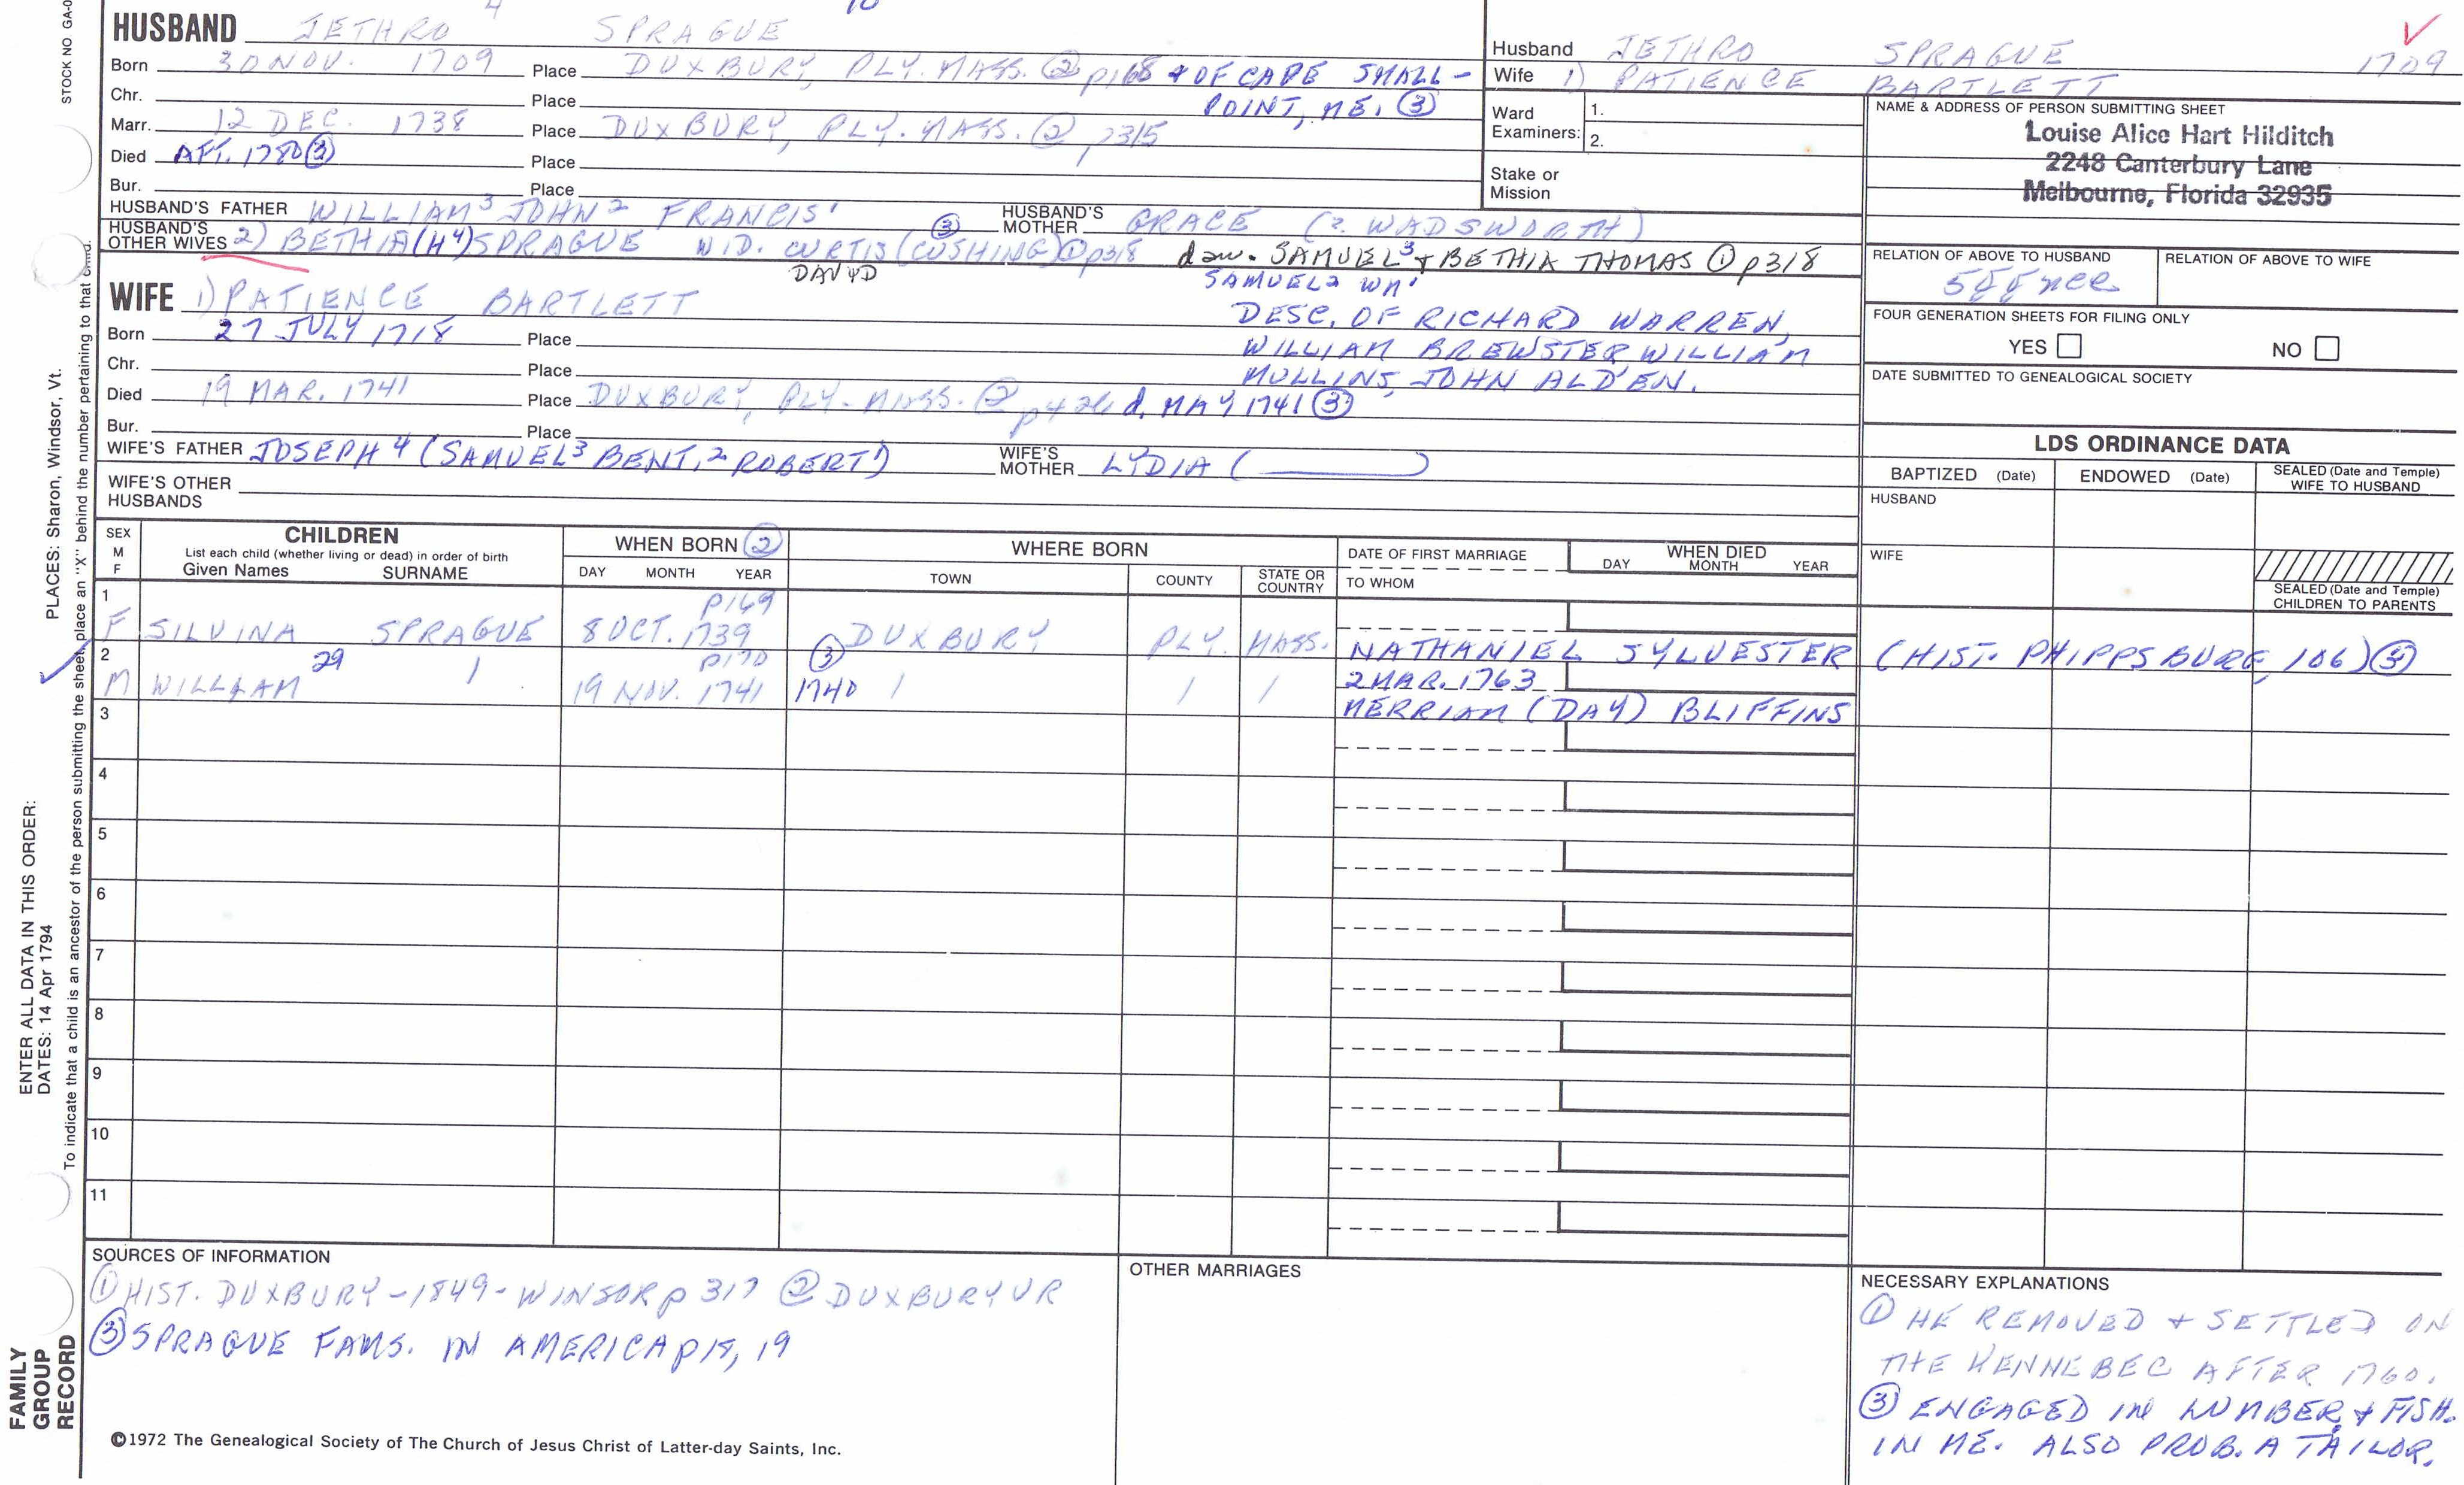 STOCK NO GA-0
4
10
HUSBAND JETHRO SPRAGUE
Born 30 NOV. 1709 Place DUXBURY, PLY. MASS. ② p168 + OF CAPE SMALL-
Chr. Place POINT, ME. ③
Marr. 12 DEC. 1738 Place DUXBURY, PLY. MASS. ②, 315
Died AFT. 1780 ③ Place
Bur. Place
HUSBAND'S FATHER WILLIAM³ JOHN² FRANCIS¹ HUSBAND'S MOTHER GRACE (?. WADSWORTH)
HUSBAND'S OTHER WIVES 2) BETHIA (H⁴) SPRAGUE WID. CURTIS ③ (CUSHING) ① p318 daw. SAMUEL³ + BETHIA THOMAS ① p318
DAVID
SAMUEL² WM¹
WIFE 1) PATIENCE BARTLETT
DESC. OF RICHARD WARREN,
Born 27 JULY 1718 Place
WILLIAM BREWSTER WILLIAM
Chr. Place
MULLINS, JOHN ALDEN.
Died 19 MAR. 1741 Place DUXBURY, PLY. MASS. ② p426 d. MAY 1741 ③
Bur. Place
WIFE'S FATHER JOSEPH⁴ (SAMUEL³ BENJ.² ROBERT¹) WIFE'S MOTHER LYDIA ( )
WIFE'S OTHER HUSBANDS
Husband JETHRO SPRAGUE 1709
Wife 1) PATIENCE BARTLETT
Ward Examiners: 1.
2.
Stake or Mission
NAME & ADDRESS OF PERSON SUBMITTING SHEET
Louise Alice Hart Hilditch
2248 Canterbury Lane
Melbourne, Florida 32935
RELATION OF ABOVE TO HUSBAND RELATION OF ABOVE TO WIFE
FOUR GENERATION SHEETS FOR FILING ONLY
YES NO
DATE SUBMITTED TO GENEALOGICAL SOCIETY
LDS ORDINANCE DATA
BAPTIZED (Date) ENDOWED (Date) SEALED (Date and Temple) WIFE TO HUSBAND
HUSBAND
WIFE
SEALED (Date and Temple) CHILDREN TO PARENTS
SEX M F
CHILDREN
List each child (whether living or dead) in order of birth
Given Names SURNAME
WHEN BORN ②
DAY MONTH YEAR
WHERE BORN
TOWN COUNTY STATE OR COUNTRY
DATE OF FIRST MARRIAGE
TO WHOM
WHEN DIED
DAY MONTH YEAR
1 p169
F SILVINA SPRAGUE 8 OCT. 1739 DUXBURY PLY. MASS. NATHANIEL SYLVESTER (HIST. PHIPPSBURG, 106) ③
2 29 p170 ③ 2 MAR. 1763
M WILLIAM 19 NOV. 1741 1740 MERRIAM (DAY) BLIFFINS
3
4
5
6
7
8
9
10
11
SOURCES OF INFORMATION
① HIST. DUXBURY-1849-WINSOR p 317 ② DUXBURY VR
③ SPRAGUE FAMS. IN AMERICA p 15, 19
OTHER MARRIAGES
NECESSARY EXPLANATIONS
① HE REMOVED + SETTLED ON
THE KENNEBEC AFTER 1760.
③ ENGAGED IN LUMBER + FISH.
IN ME. ALSO PROB. A TAILOR.
©1972 The Genealogical Society of The Church of Jesus Christ of Latter-day Saints, Inc.
FAMILY GROUP RECORD
ENTER ALL DATA IN THIS ORDER:
DATES: 14 Apr 1794
PLACES: Sharon, Windsor, Vt.
To indicate that a child is an ancestor of the person submitting the sheet, place an "X" behind the number pertaining to that child.